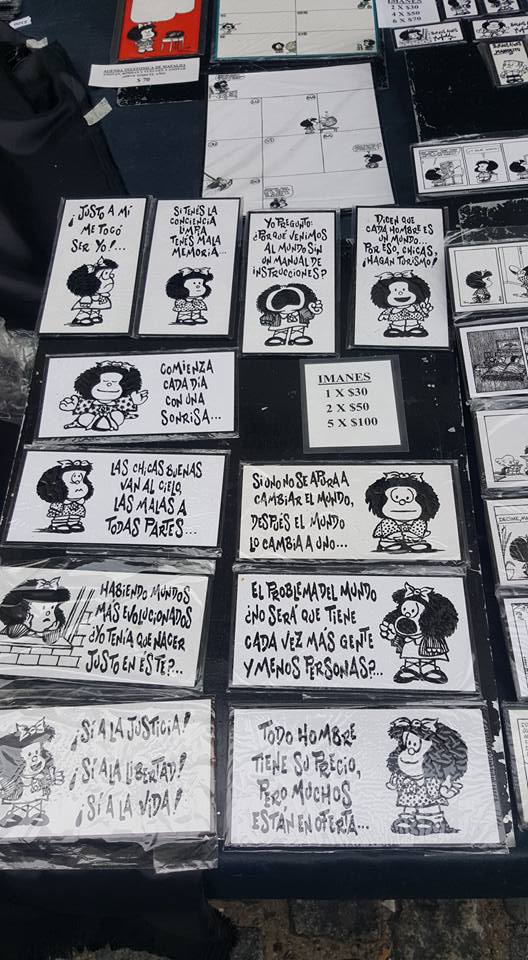 IMANES
2 X $30
4 X $50
6 X $70
$ 70
¡JUSTO A MÍ
ME TOCÓ
SER YO!...
SI TENÉS LA
CONCIENCIA
LIMPIA
TENÉS MALA
MEMORIA...
YO PREGUNTO:
¿PORQUÉ VENIMOS
AL MUNDO SIN
UN MANUAL DE
INSTRUCCIONES?
DICEN QUE
CADA HOMBRE ES
UN MUNDO...
POR ESO, CHICAS,
¡HAGAN TURISMO!
COMIENZA
CADA DÍA
CON UNA
SONRISA...
IMANES
1 X $30
2 X $50
5 X $100
LAS CHICAS BUENAS
VAN AL CIELO,
LAS MALAS A
TODAS PARTES...
SI UNO NO SE APURA A
CAMBIAR EL MUNDO,
DESPUÉS EL MUNDO
LO CAMBIA A UNO...
HABIENDO MUNDOS
MÁS EVOLUCIONADOS
¿YO TENÍA QUE NACER
JUSTO EN ÉSTE?...
EL PROBLEMA DEL MUNDO
¿NO SERÁ QUE TIENE
CADA VEZ MÁS GENTE
Y MENOS PERSONAS?...
¡SÍ A LA JUSTICIA!
¡SÍ A LA LIBERTAD!
¡SÍ A LA VIDA!
TODO HOMBRE
TIENE SU PRECIO,
PERO MUCHOS
ESTÁN EN OFERTA...